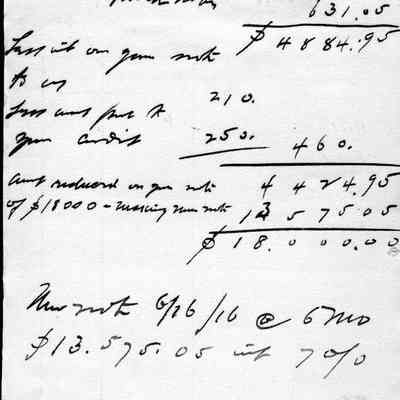 631.05
$ 4884.95
Less int on your note
to us 210.
Less amt put to
your credit 250. 460.
amt reduced on your note 4424.95
of $18000 - making new note 13575.05
$18.000.00
New note 6/26/16 @ 6 mo
$13.575.05 int 7 0/0